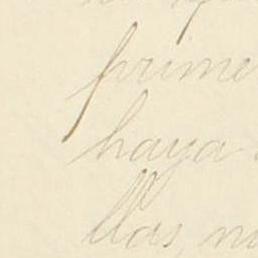 prime
haya
llas, n